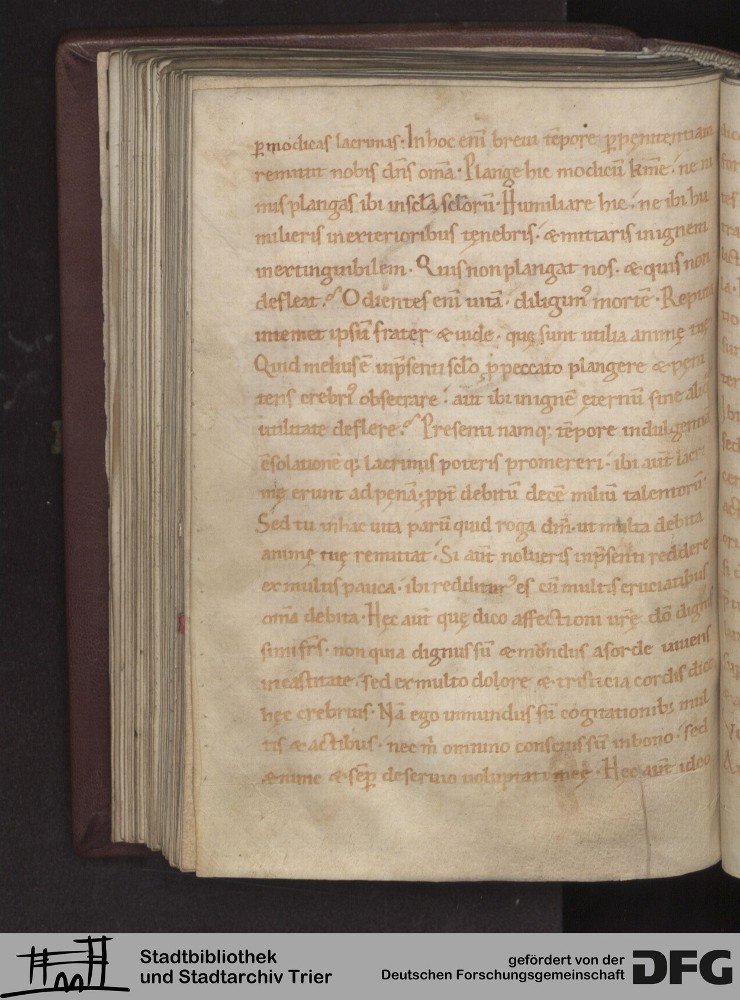 p̱ modicas lacrimas · In hoc eni᷑ brevi te᷑pore p̱ pęnitentiam
remittit nobis dn̄s om̄a · Plange hic modicū km̄e · ne ni
mis plangas ibi in scłā scłorū · Humiliare hic · ne ibi hu
milieris in exterioribus tęnebris · & mittaris in ignem
inextinguibilem · Quis non plangat nos · & quis non
defleat · Odientes eni᷑ vitā · diligim᷒ mortē · Reputa
in temet ipsū frater & vide · quę sunt utilia animę tuę
Quid melius ē in p̄senti scło p̱ peccato plangere & pęni
tens crebri᷒ obsecrare · aut ibi in ignē ęternū sine aliq
utilitate deflere · Presenti namq; tēpore indulgentiā
c̄solationēq; lacrimis poteris promereri · ibi aūt lacri
mę erunt ad pęnā · ꝓpt̄ debitū decē miliū talentorū ·
Sed tu in hac vita parū quid roga dm̄ · ut multa debita
animę tuę remittat · Si aūt nolueris in p̄senti reddere
ex multis pauca · ibi redditur᷒ es cū multis cruciatibus
om̄a debita · Hęc aūt quę dico affectioni vr̄ę dō digni
simi fr̄s · non quia dignus sū & mōndus a sorde viveris
in castitate · sed ex multo dolore & tristicia cordis dico
hęc crebrius · Nā ego inmundus sū cogitationibs mul
tis & actibus · nec m̄ omnino conscius sū in bono · sed
& nunc & sēp deservio voluptati meę · Hęc aūt idco
Stadtbibliothek
und Stadtarchiv Trier
gefördert von der
Deutschen Forschungsgemeinschaft
DFG